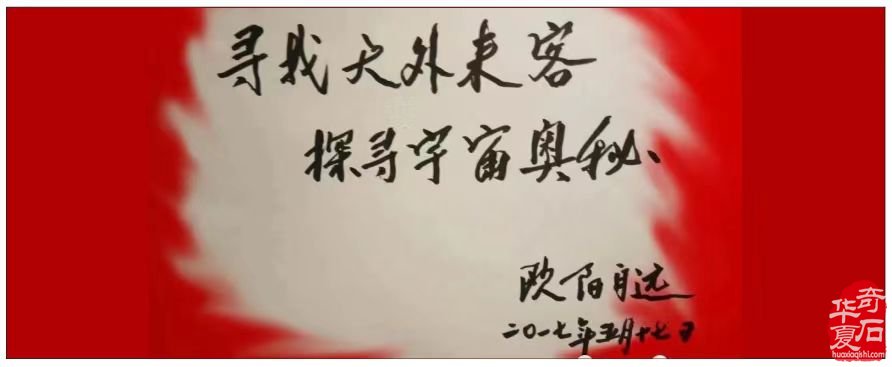 寻找天外来客
探寻宇宙奥秘、
欧阳自远
二〇一七年五月十七日
华夏奇石
huaxiaqishi.com